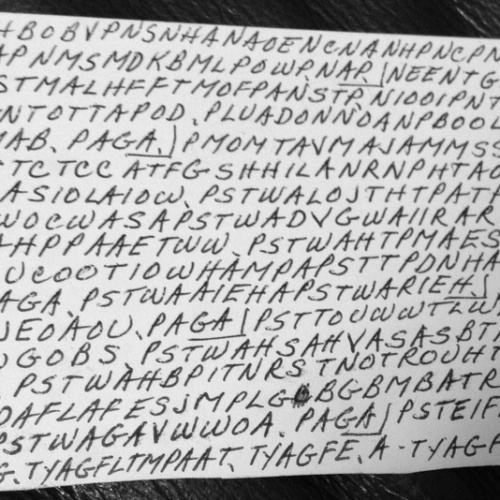 HBOBVPNSNHANAOENCNANHPNCPN
APNMSMDKBMLPOWP.NAP.|NEENTG
STMALHFFTMOFPANSTP.NIOOIPNT
NTOTTAPOD.PLUADONNOANPBOOL
MAB.PAGA.|PMOMTAVMAJAMMSS
TCTCC ATFGSHHILANRNPHTAO
ASIOLAIOW.PSTWALOJTHTPAT
WOCWASAPSTWADVGWAIIRAR
AHPPAAETWW.PSTWAHTPMAES
UCOOTIOWHAMPAPSTTPDNHA
AGA.PSTWAAIEHAPSTWARIEH.|
JEOAOU.PAGA|PSTTOUWWTLW
OGOBS.PSTWAHSAHVASASBT
PSTWAHBPITNRSTNOTROUHT
OAFLAFESJMPLGOBGBMBATR
PSTWAGAVWWOA.PAGA|PSTEIF
G.TYAGFLTMPAAT.TYAGFE.A-TYAGF